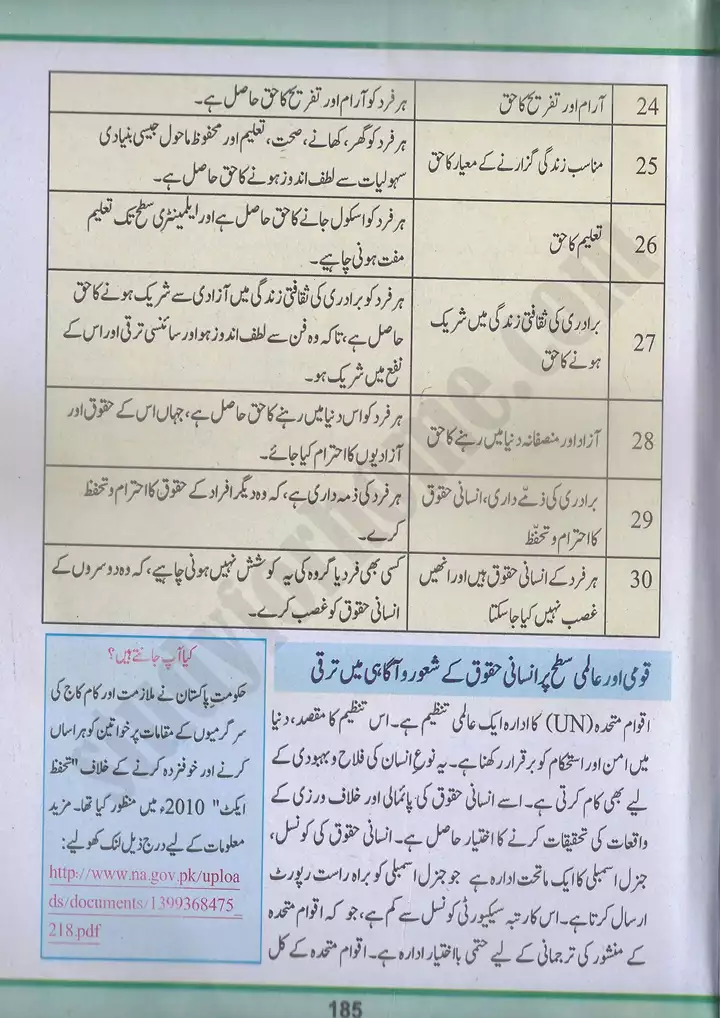 24
آرام اور تفریح کا حق
ہر فرد کو آرام اور تفریح کا حق حاصل ہے۔
25
مناسب زندگی گزارنے کے معیار کا حق
ہر فرد کو گھر، کھانے، صحت، تعلیم اور محفوظ ماحول جیسی بنیادی
سہولیات سے لطف اندوز ہونے کا حق حاصل ہے۔
26
تعلیم کا حق
ہر فرد کو اسکول جانے کا حق حاصل ہے اور ایلیمنٹری سطح تک تعلیم
مفت ہونی چاہیے۔
27
برادری کی ثقافتی زندگی میں شریک
ہونے کا حق
ہر فرد کو برادری کی ثقافتی زندگی میں آزادی سے شریک ہونے کا حق
حاصل ہے، تاکہ وہ فن سے لطف اندوز ہو اور سائنسی ترقی اور اس کے
نفع میں شریک ہو۔
28
آزاد اور منصفانہ دنیا میں رہنے کا حق
ہر فرد کو اس دنیا میں رہنے کا حق حاصل ہے، جہاں اس کے حقوق اور
آزادیوں کا احترام کیا جائے۔
29
برادری کی ذمّے داری، انسانی حقوق
کا احترام و تحفّظ
ہر فرد کی ذمہ داری ہے، کہ وہ دیگر افراد کے حقوق کا احترام و تحفظ
کرے۔
30
ہر فرد کے انسانی حقوق ہیں اور انھیں
غصب نہیں کیا جا سکتا
کسی بھی فرد یا گروہ کی یہ کوشش نہیں ہونی چاہیے، کہ وہ دوسروں کے
انسانی حقوق کو غصب کرے۔
قومی اور عالمی سطح پر انسانی حقوق کے شعور و آگاہی میں ترقی
اقوام متحدہ (UN) کا ادارہ ایک عالمی تنظیم ہے۔ اس تنظیم کا مقصد، دنیا
میں امن اور استحکام کو برقرار رکھنا ہے۔ یہ نوعِ انسان کی فلاح و بہبودی کے
لیے بھی کام کرتی ہے۔ اسے انسانی حقوق کی پائمالی اور خلاف ورزی کے
واقعات کی تحقیقات کرنے کا اختیار حاصل ہے۔ انسانی حقوق کی کونسل،
جنرل اسمبلی کا ایک ماتحت ادارہ ہے جو جنرل اسمبلی کو براہ راست رپورٹ
ارسال کرتا ہے۔ اس کا رتبہ سیکیورٹی کونسل سے کم ہے، جو کہ اقوام متحدہ
کے منشور کی ترجمانی کے لیے حتمی بااختیار ادارہ ہے۔ اقوام متحدہ کے کل
کیا آپ جانتے ہیں؟
حکومتِ پاکستان نے ملازمت اور کام کاج کی
سرگرمیوں کے مقامات پر خواتین کو ہراساں
کرنے اور خوفزدہ کرنے کے خلاف "تحفظ
ایکٹ" 2010ء میں منظور کیا تھا۔ مزید
معلومات کے لیے درج ذیل لنک کھولیے:
http://www.na.gov.pk/uploa
ds/documents/1399368475_
218.pdf
185
studyforhome.com